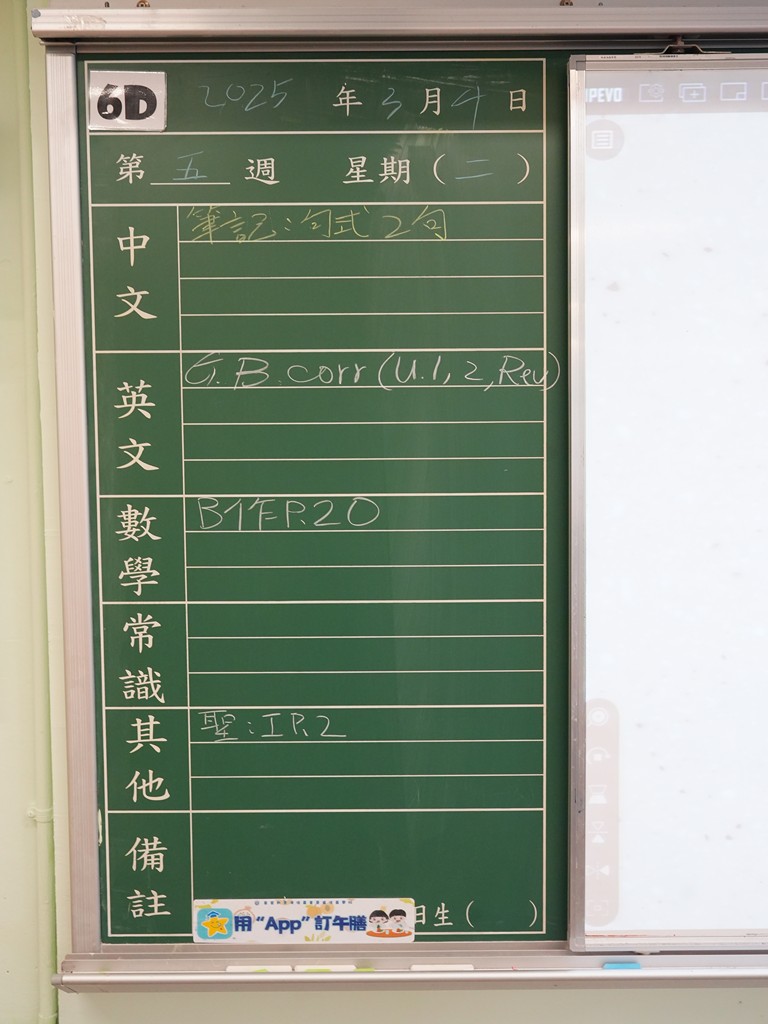 6D 2025 年 3 月 4 日
第 五 週 星期(二)
中文 筆記:句式2句
英文 G.B. corr (U.1, 2, Rev)
數學 B作P.20
常識
其他 聖:I P.2
備註
用“App”訂午膳 日生( )
IPEVO